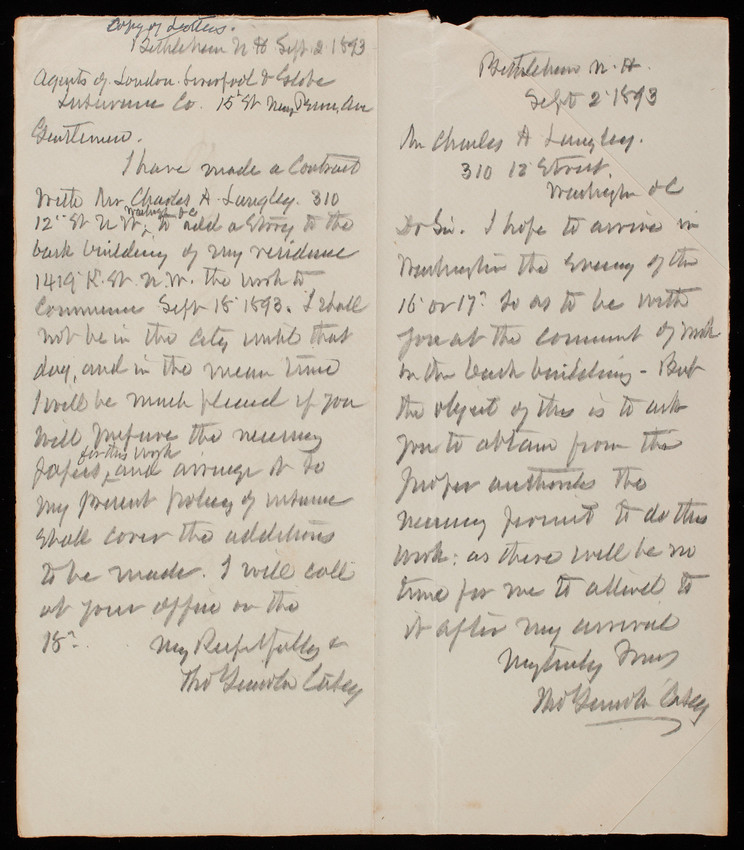 Copy of Letters.
Bethlehem N H Sept 2 1893
Agents of London Liverpool & Globe
Insurance Co. 15 St near Penn. Ave
Gentlemen.
I have made a Contract
with Mr Charles A. Langley. 310
Washington DC
12" St N.W. to add a Story to the
back building of my residence
1419 K. St. N.W. the work to
Commence Sept 18 1893. I shall
not be in the City until that
day, and in the mean time
I will be much pleased if you
will prepare the necessary
for this work
papers, and arrange it so
my present policy of insurance
shall cover the additions
to be made. I will call
at your office on the
18".
Very Respectfully &
Tho Lincoln Casey
Bethlehem N. H.
Sept 2 1893
Mr Charles A Langley.
310 12 Street.
Washington DC
Dr Sir. I hope to arrive in
Washington the Evening of the
16 or 17" so as to be with
you at the commment of work
on the back building - But
the object of this is to ask
you to obtain from the
proper authorities the
necessary permit to do this
work: as there will be no
time for me to attend to
it after my arrival
Very truly Yours
Tho Lincoln Casey